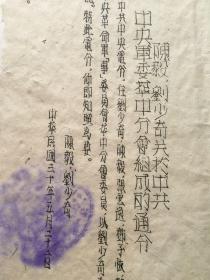 陳毅、劉少奇关於中共
中央軍委華中分會組成的通令
中共中央電令，任劉少奇、陳毅、張雲逸、鄧子恢、
央革命軍事委員會華中分會委員，以劉少奇
記。特此電令，仰即知照為要。
陳毅、劉少奇
中華民國三十年五月二十二日